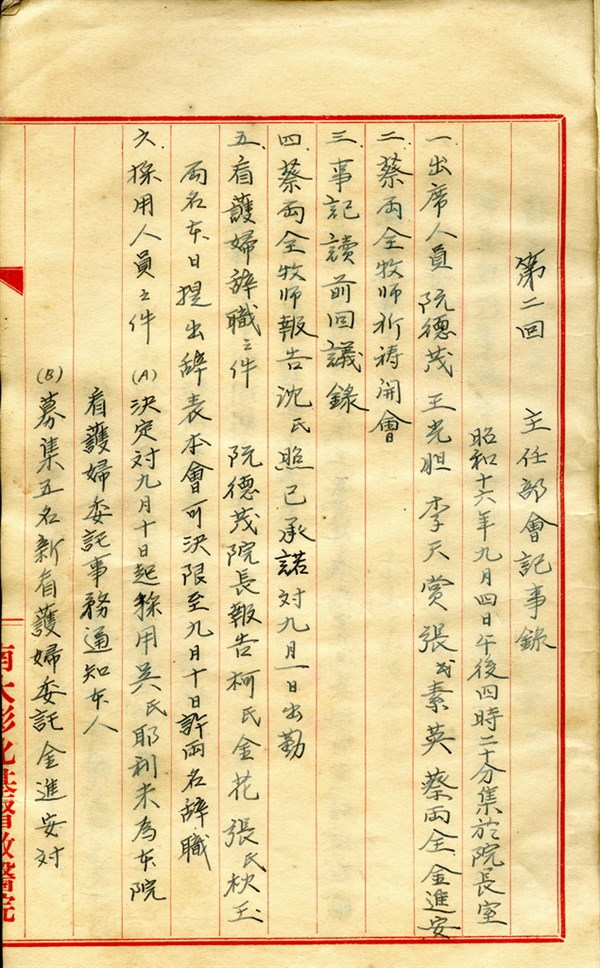 第二回　主任部會記事錄
昭和十六年九月四日午後四時二十分集於院長室
一、出席人員　阮德茂　王光胆　李天賞　張氏素英　蔡雨全　金進安
二、蔡雨全牧師祈禱開會
三、事記讀前回議錄
四、蔡雨全牧師報告沈氏照已承諾対九月一日出勤
五、看護婦辞職之件　阮德茂院長報告柯氏金花　張氏秋玉
両名本日提出辞表本會可決限至九月十日許両名辞職
六、採用人員之件　(A)決定対九月十日起採用吳氏耶利未為本院
看護婦委託事務通知本人
(B)募集五名新看護婦委託金進安対
彰化基督教醫院